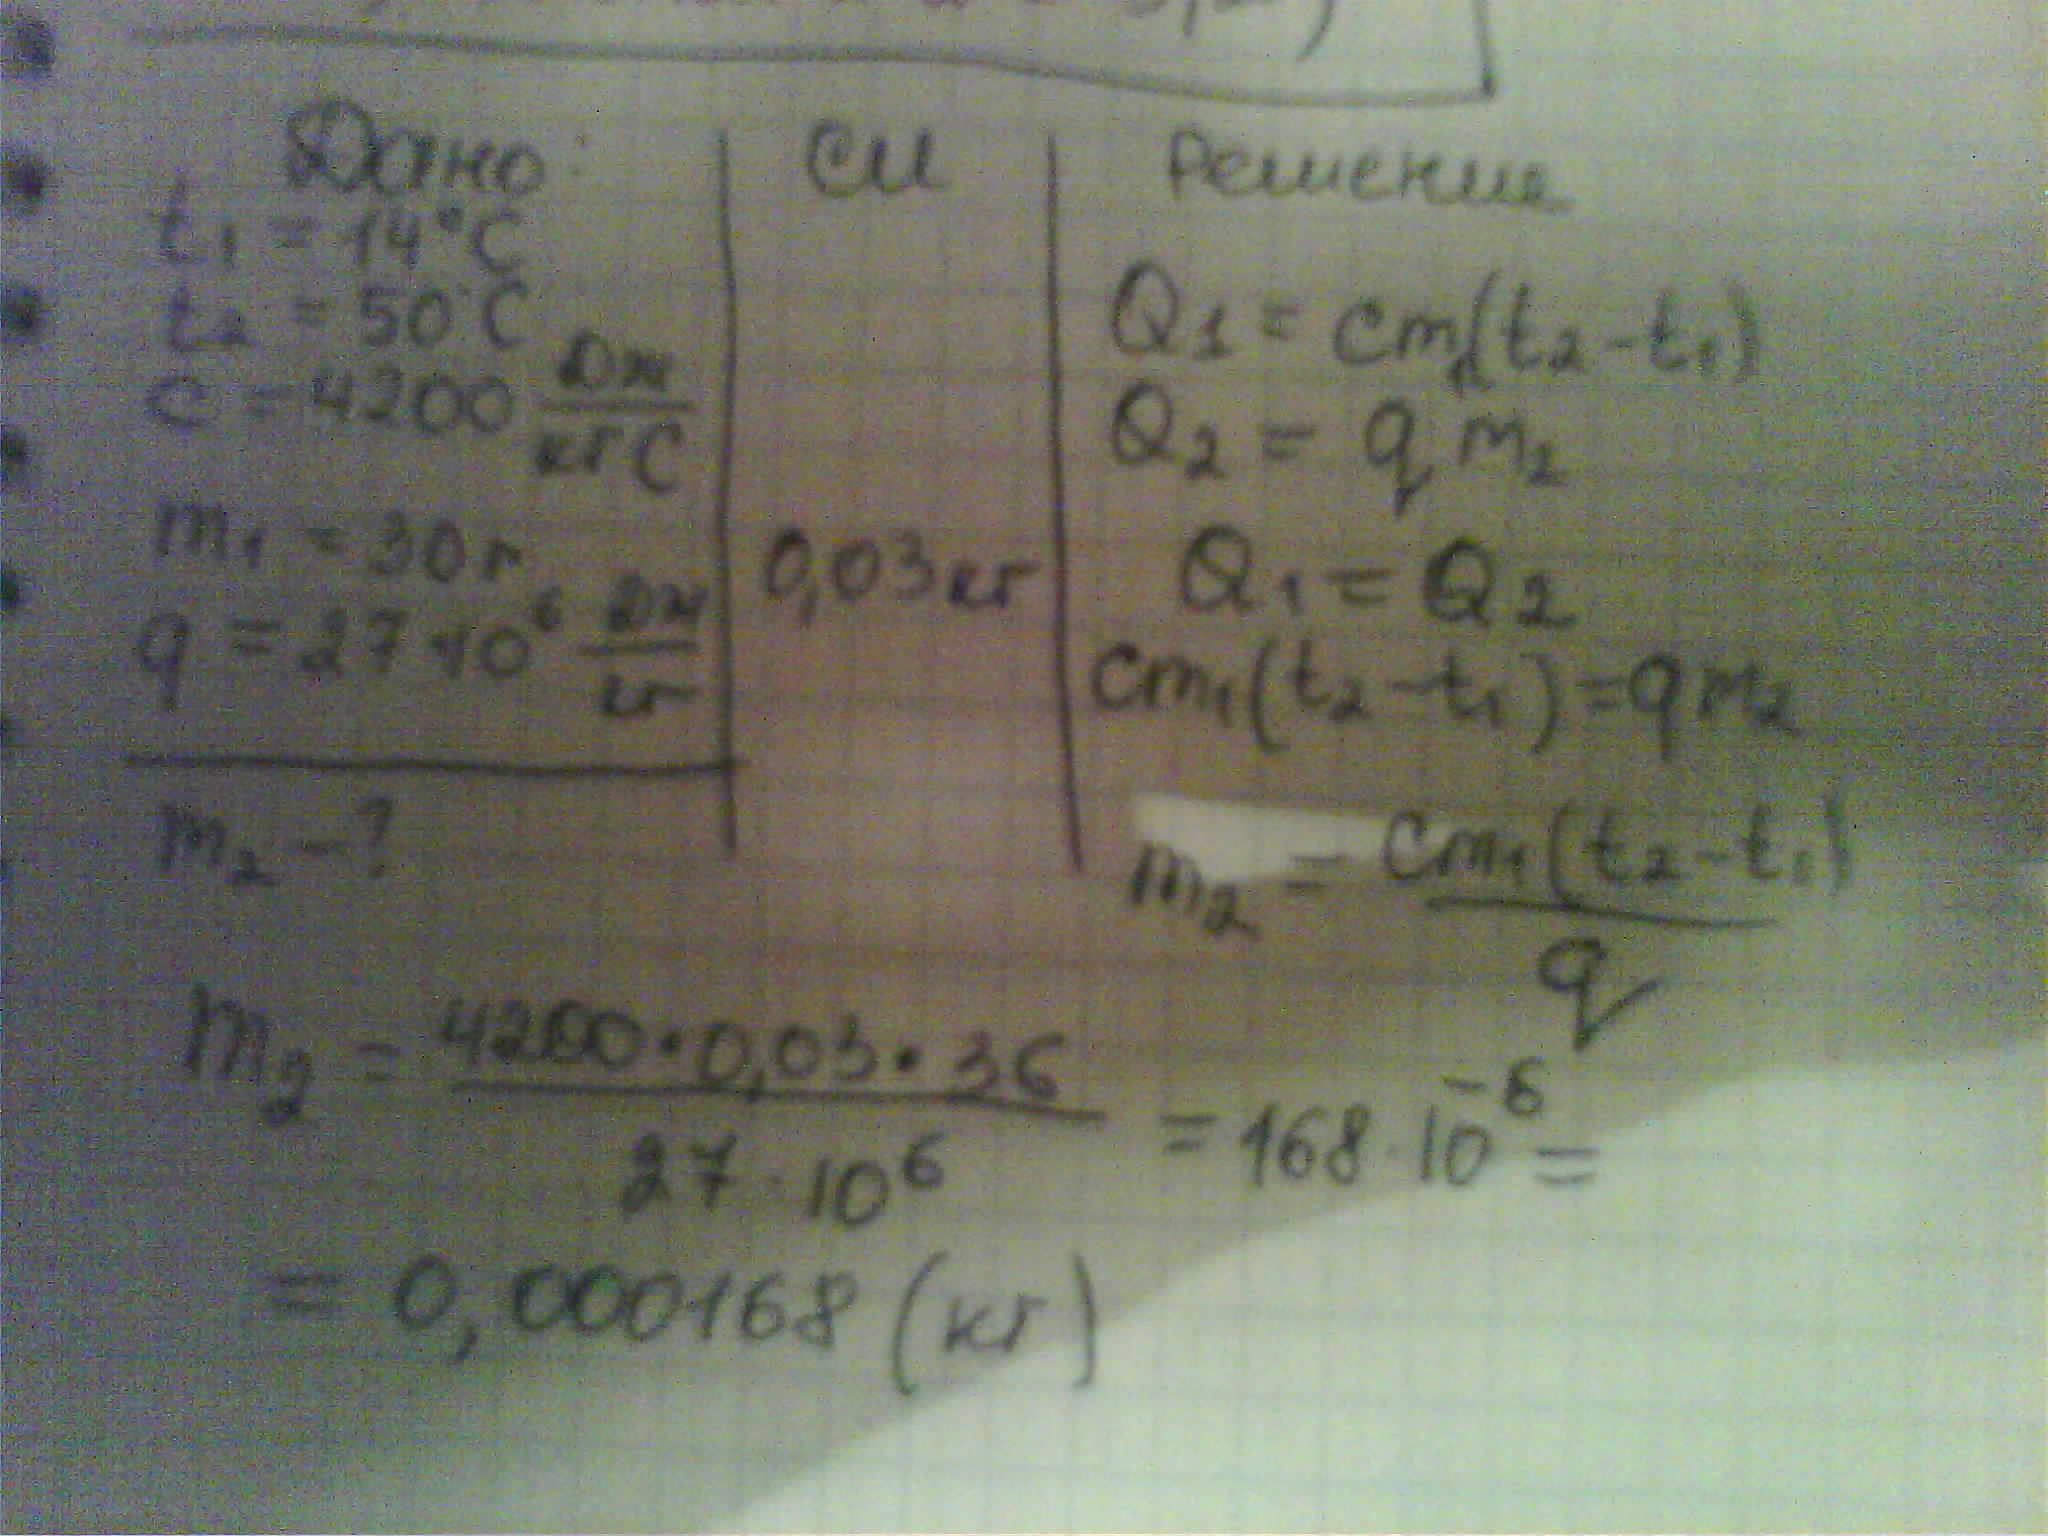 Дано:
t₁ = 14°C
t₂ = 50°C
c = 4200 Дж/кг°C
m₁ = 30г
q = 27·10⁶ Дж/кг
m₂ - ?
СИ
0,03кг
Решение
Q₁ = cm₁(t₂-t₁)
Q₂ = qm₂
Q₁ = Q₂
cm₁(t₂-t₁)=qm₂
m₂ = cm₁(t₂-t₁)/q
m₂ = 4200·0,03·36/27·10⁶ = 168·10⁻⁶ =
= 0,000168 (кг)